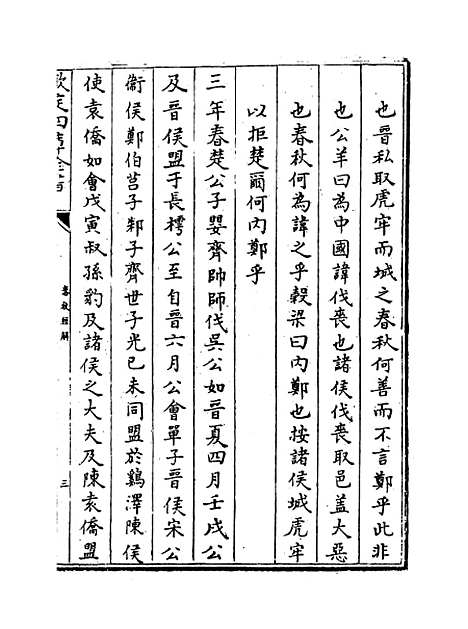 也晉私取虎牢而城之春秋何善而不言鄭乎此非
也公羊曰為中國諱伐喪也諸侯伐喪取邑蓋大惡
也春秋何為諱之乎穀梁曰内鄭也按諸侯城虎牢
以拒楚爾何内鄭乎
三年春楚公子嬰齊帥師伐吳公如晉夏四月壬戌公
及晉侯盟于長樗公至自晉六月公會單子晉侯宋公
衞侯鄭伯莒子邾子齊世子光已未同盟於鷄澤陳侯
使袁僑如會戊寅叔孫豹及諸侯之大夫及陳袁僑盟
欽定四庫全書
春秋經解
三